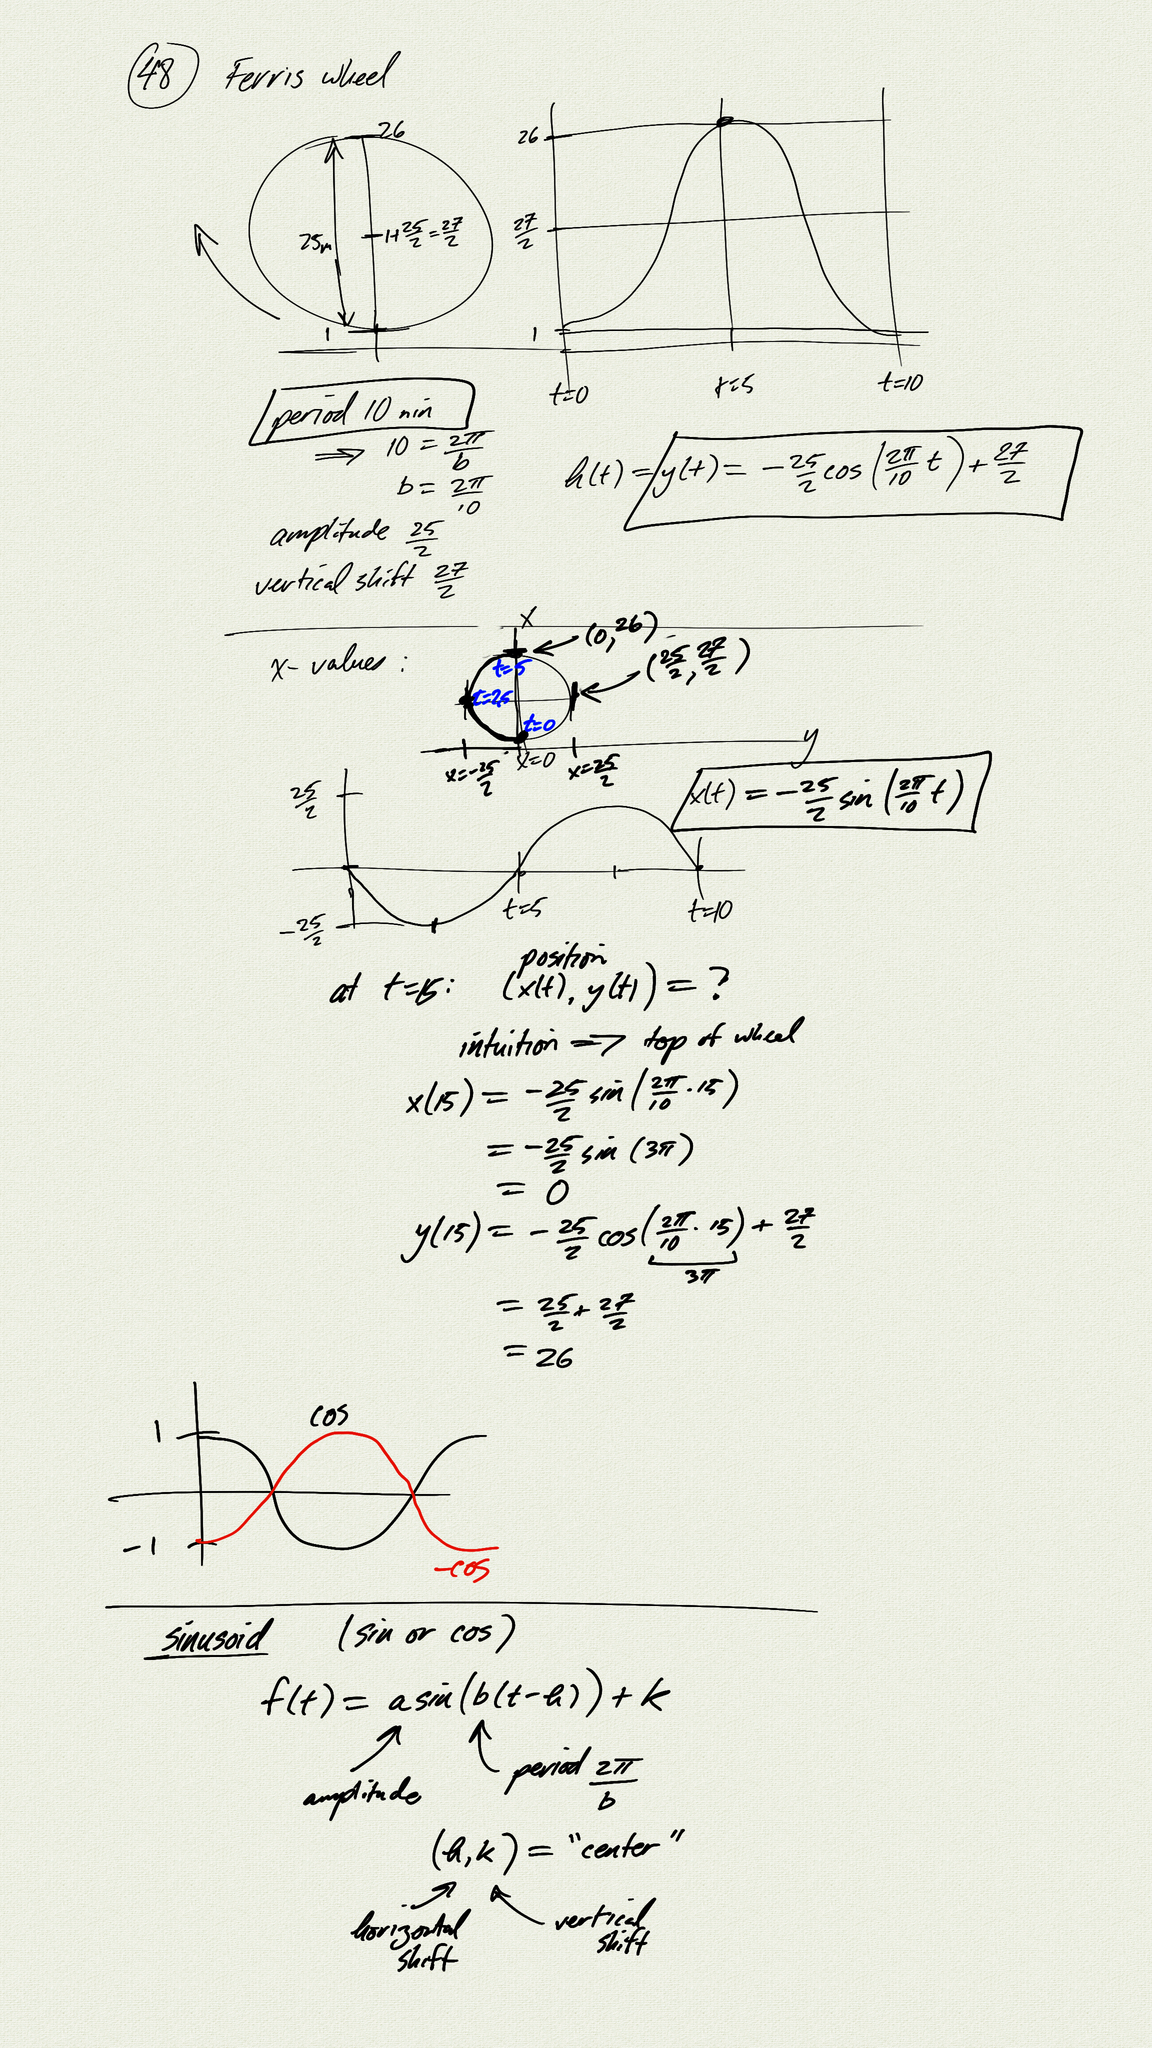 48 Ferris wheel
26
25m
1+25/2=27/2
1
26
27/2
1
t=0
t=5
t=10
period 10 min
⇒ 10 = 2π/b
b = 2π/10
amplitude 25/2
vertical shift 27/2
h(t) = y(t) = -25/2 cos(2π/10 t) + 27/2
x-values:
x
(0, 26)
(25/2, 27/2)
t=5
t=2.5
t=0
y
x=-25/2
x=0
x=25/2
x(t) = -25/2 sin(2π/10 t)
25/2
-25/2
t=5
t=10
position
at t=15: (x(t), y(t)) = ?
intuition ⇒ top of wheel
x(15) = -25/2 sin(2π/10 · 15)
= -25/2 sin(3π)
= 0
y(15) = -25/2 cos(2π/10 · 15) + 27/2
3π
= 25/2 + 27/2
= 26
1
cos
-1
-cos
sinusoid (sin or cos)
f(t) = a sin(b(t-h)) + k
amplitude
period 2π/b
(h, k) = "center"
horizontal shift
vertical shift